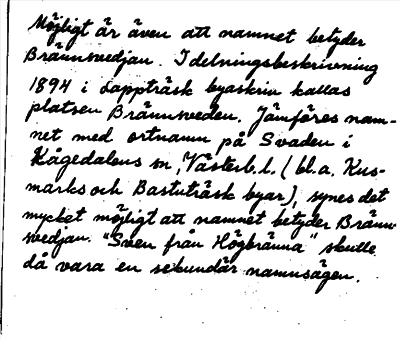 Möjligt är även att namnet betyder
Brännsvedjan. I delningsbeskrivning
1894 i Lappträsk byaskrin kallas
platsen Brännsveden. Jämföres nam-
net med ortnamn på Svaden i
Kågedalens sn, Västerb.l. (bl.a. Kus-
marks och Bastuträsk byar), synes det
mycket möjligt att namnet betyder Bränn-
svedjan. "Sven från Högbränna" skulle
då vara en sekundär namnsägen.